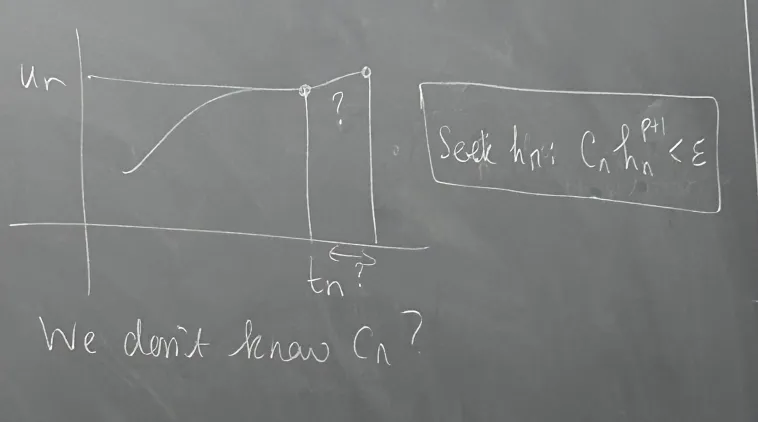 un
?
Seek hn: Cn hn^p+1 < ε
?
tn
We don't know Cn?